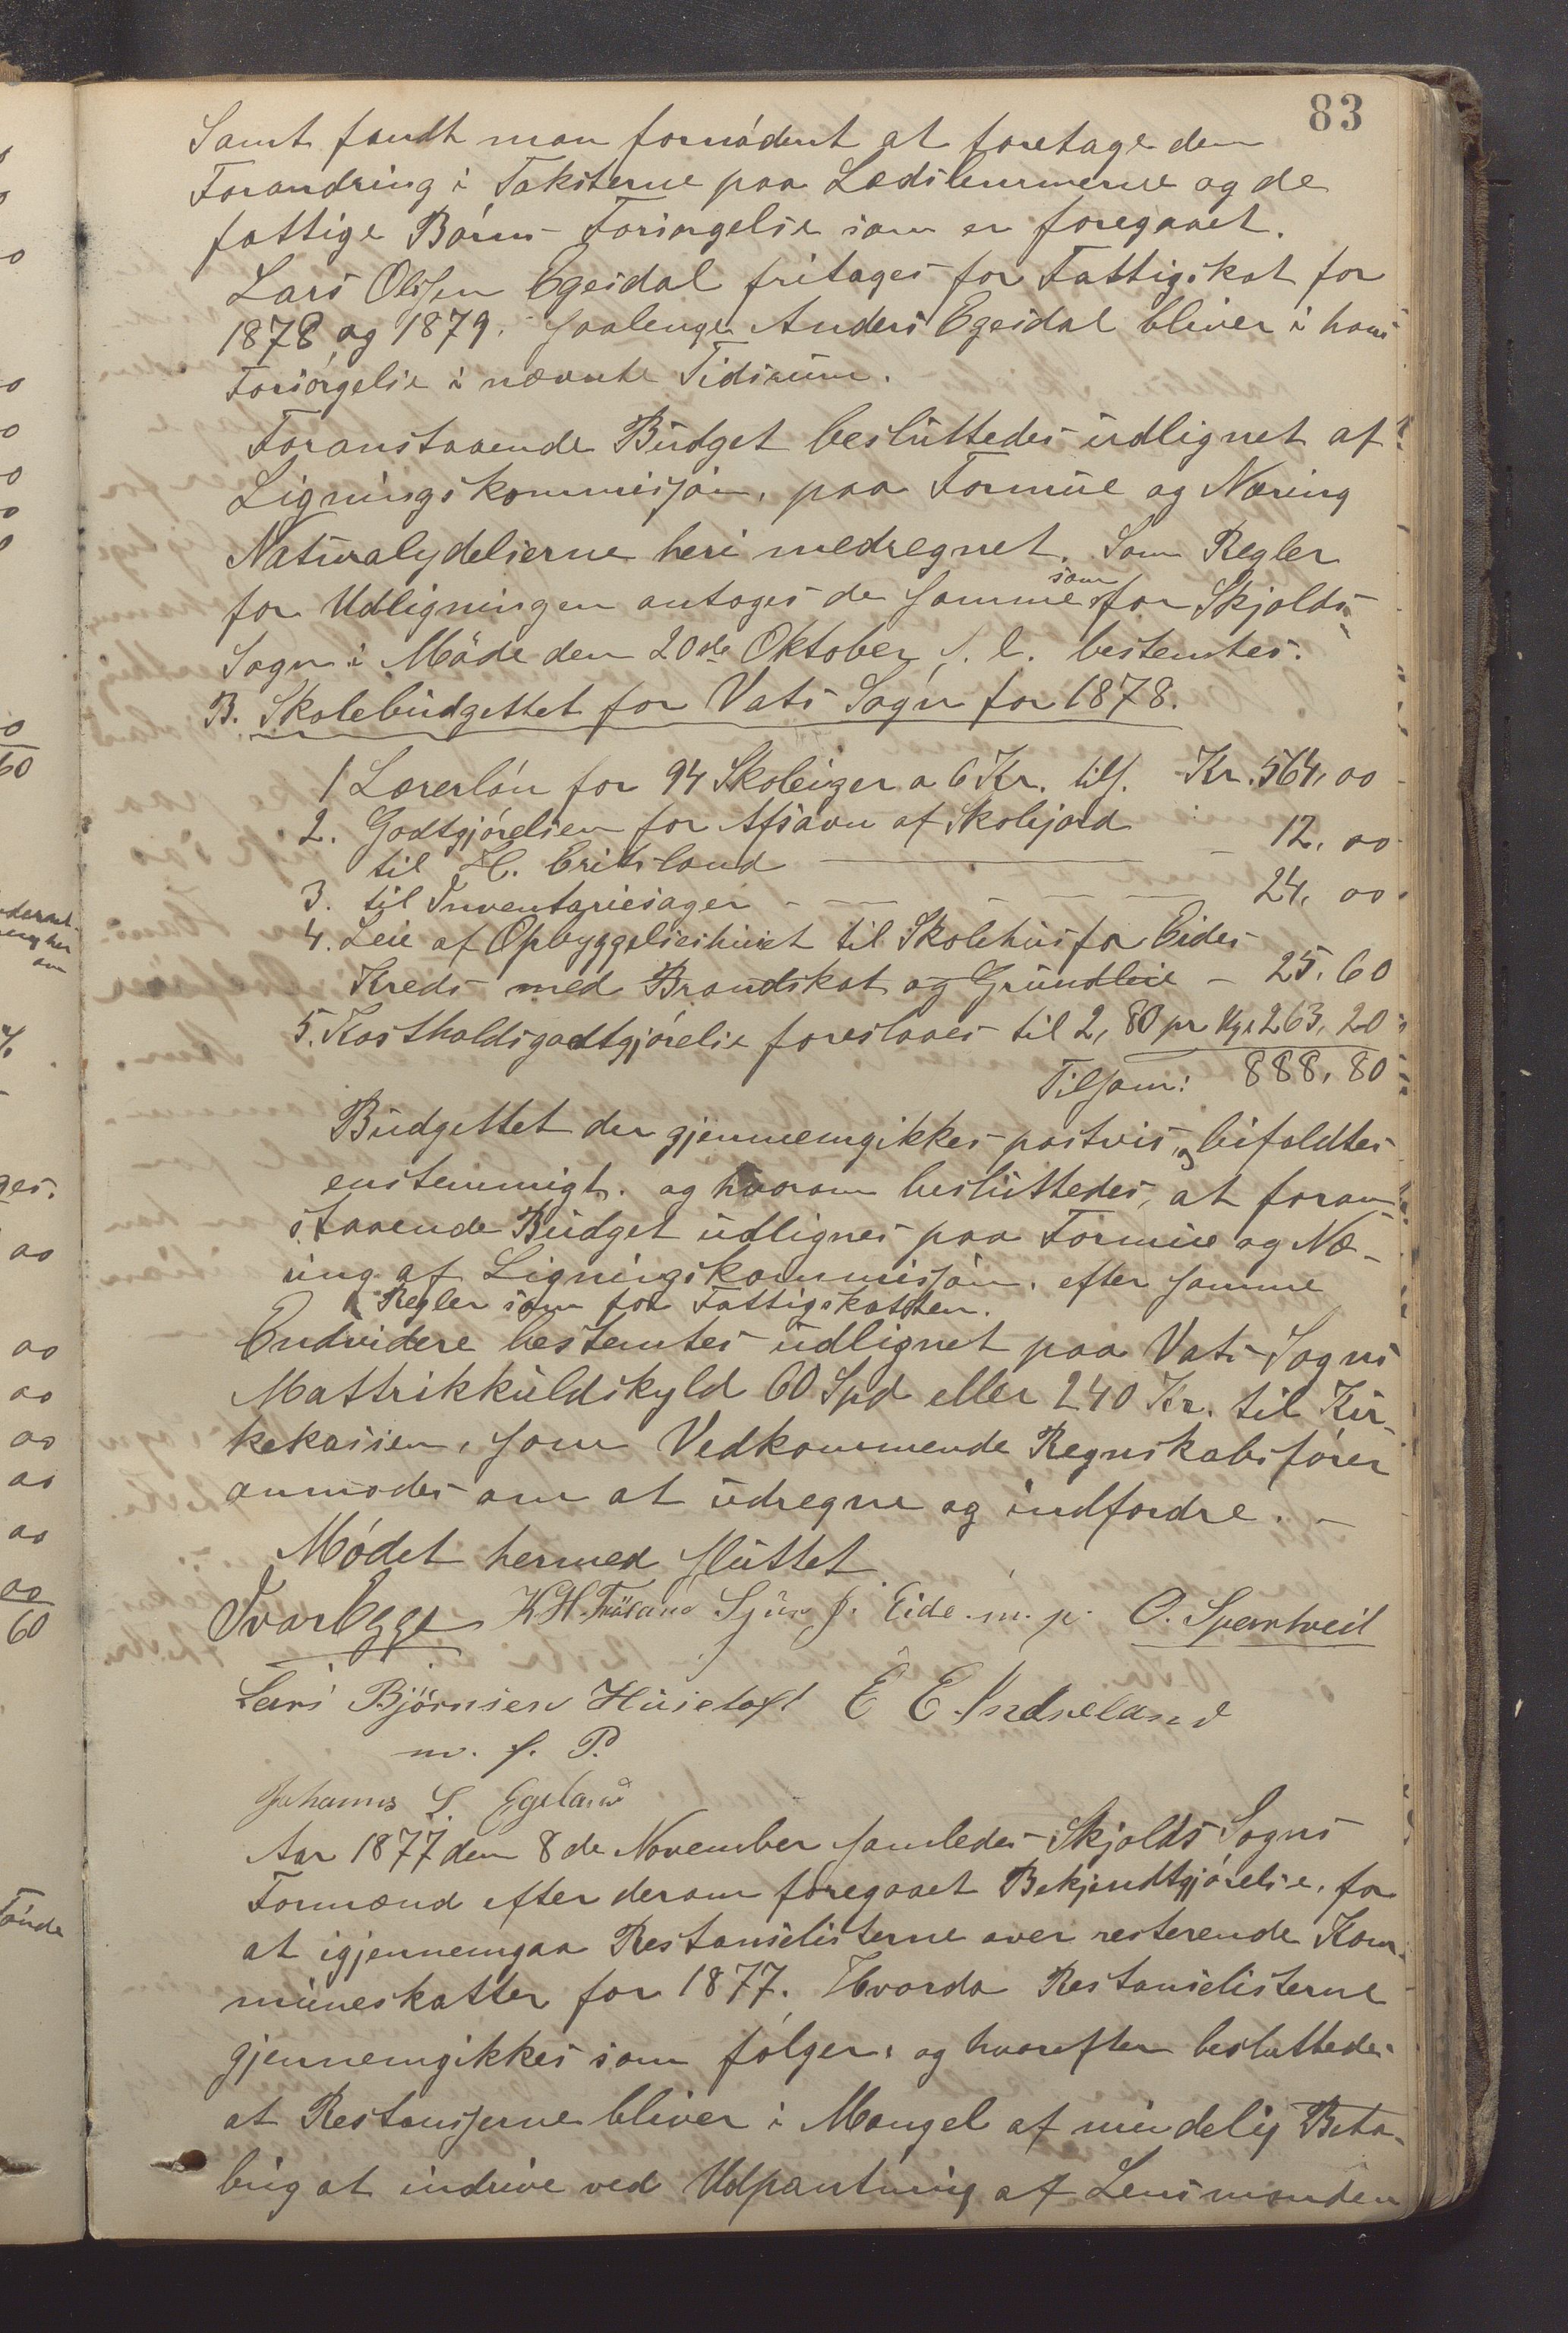 83
Samt fandt man fornødent at foretage den
Forandring i Taksterne paa Lædslemmerne og de
fattige Børns Forsørgelse som er foregaaet.
Lars Olsen Egesdal fritages for Fattigskat for
1878 og 1879. saalenge Anders Egesdal bliver i hans
Forsørgelse i nævnte Tidsrum.
Foranstaaende Budget besluttedes udlignet af
Ligningskommissjon, paa Formue og Næring
Naturalydelserne heri medregnet. Som Regler
for Udligningen antages de samme som for Skjolds
Sogn i Møde den 20de Oktober s. l. bestemtes.
B. Skolebudgettet for Vats Sogn for 1878.
1 Lærerløn for 94 Skoleuger a 6 Kr. tils. Kr. 564,00
2. Godtgjørelsen for Afsavn af Skolejord
til H. Eritsland — 12,00
3. til Inventariesager - — - — — 24,00
4. Leie af Opbyggelseshuset til Skolehus for Eides
Kreds med Brandskat og Grundleie - 25,60
5. Kostholdsgodtgjørelse foreslaaes til 2,80 pr Uge 263,20
Tilsam: 888,80
Budgettet der gjennemgikkes postvis, og bifaldtes
enstemmigt. og hvorom besluttedes, at foran-
staaende Budget udlignes paa Formue og Næ-
ring af Ligningskommissjon. efter samme
Regler som for Fattigskatten.
Endvidere bestemtes udlignet paa Vats Sogns
Mattrikkuldskyld 60 Spd eller 240 Kr. til Kir-
kekassen, som Vedkommende Regnskabsfører
anmodes om at udregne og indfordre. -
Mødet hermed sluttet
Ivar Egge K H. Frøland Sjur J. Eide. m. p. O. Spantveit
Lars Björnsen Husetoft E E. Indreland
m. f. P.
Johannes L. Egeland
Aar 1877 den 8de November samledes Skjolds Sogns
Formænd efter derom foregaaet Bekjendtgjørelse, for
at igjennemgaa Restanselisterne over resterende Kom-
muneskatter for 1877. Hvorda Restanselisterne
gjennemgikkes som følger: og hvorefter besluttedes
at Restansjerne bliver i Mangel af mindelig Beta-
ling at indrive ved Udpantning af Lensmanden